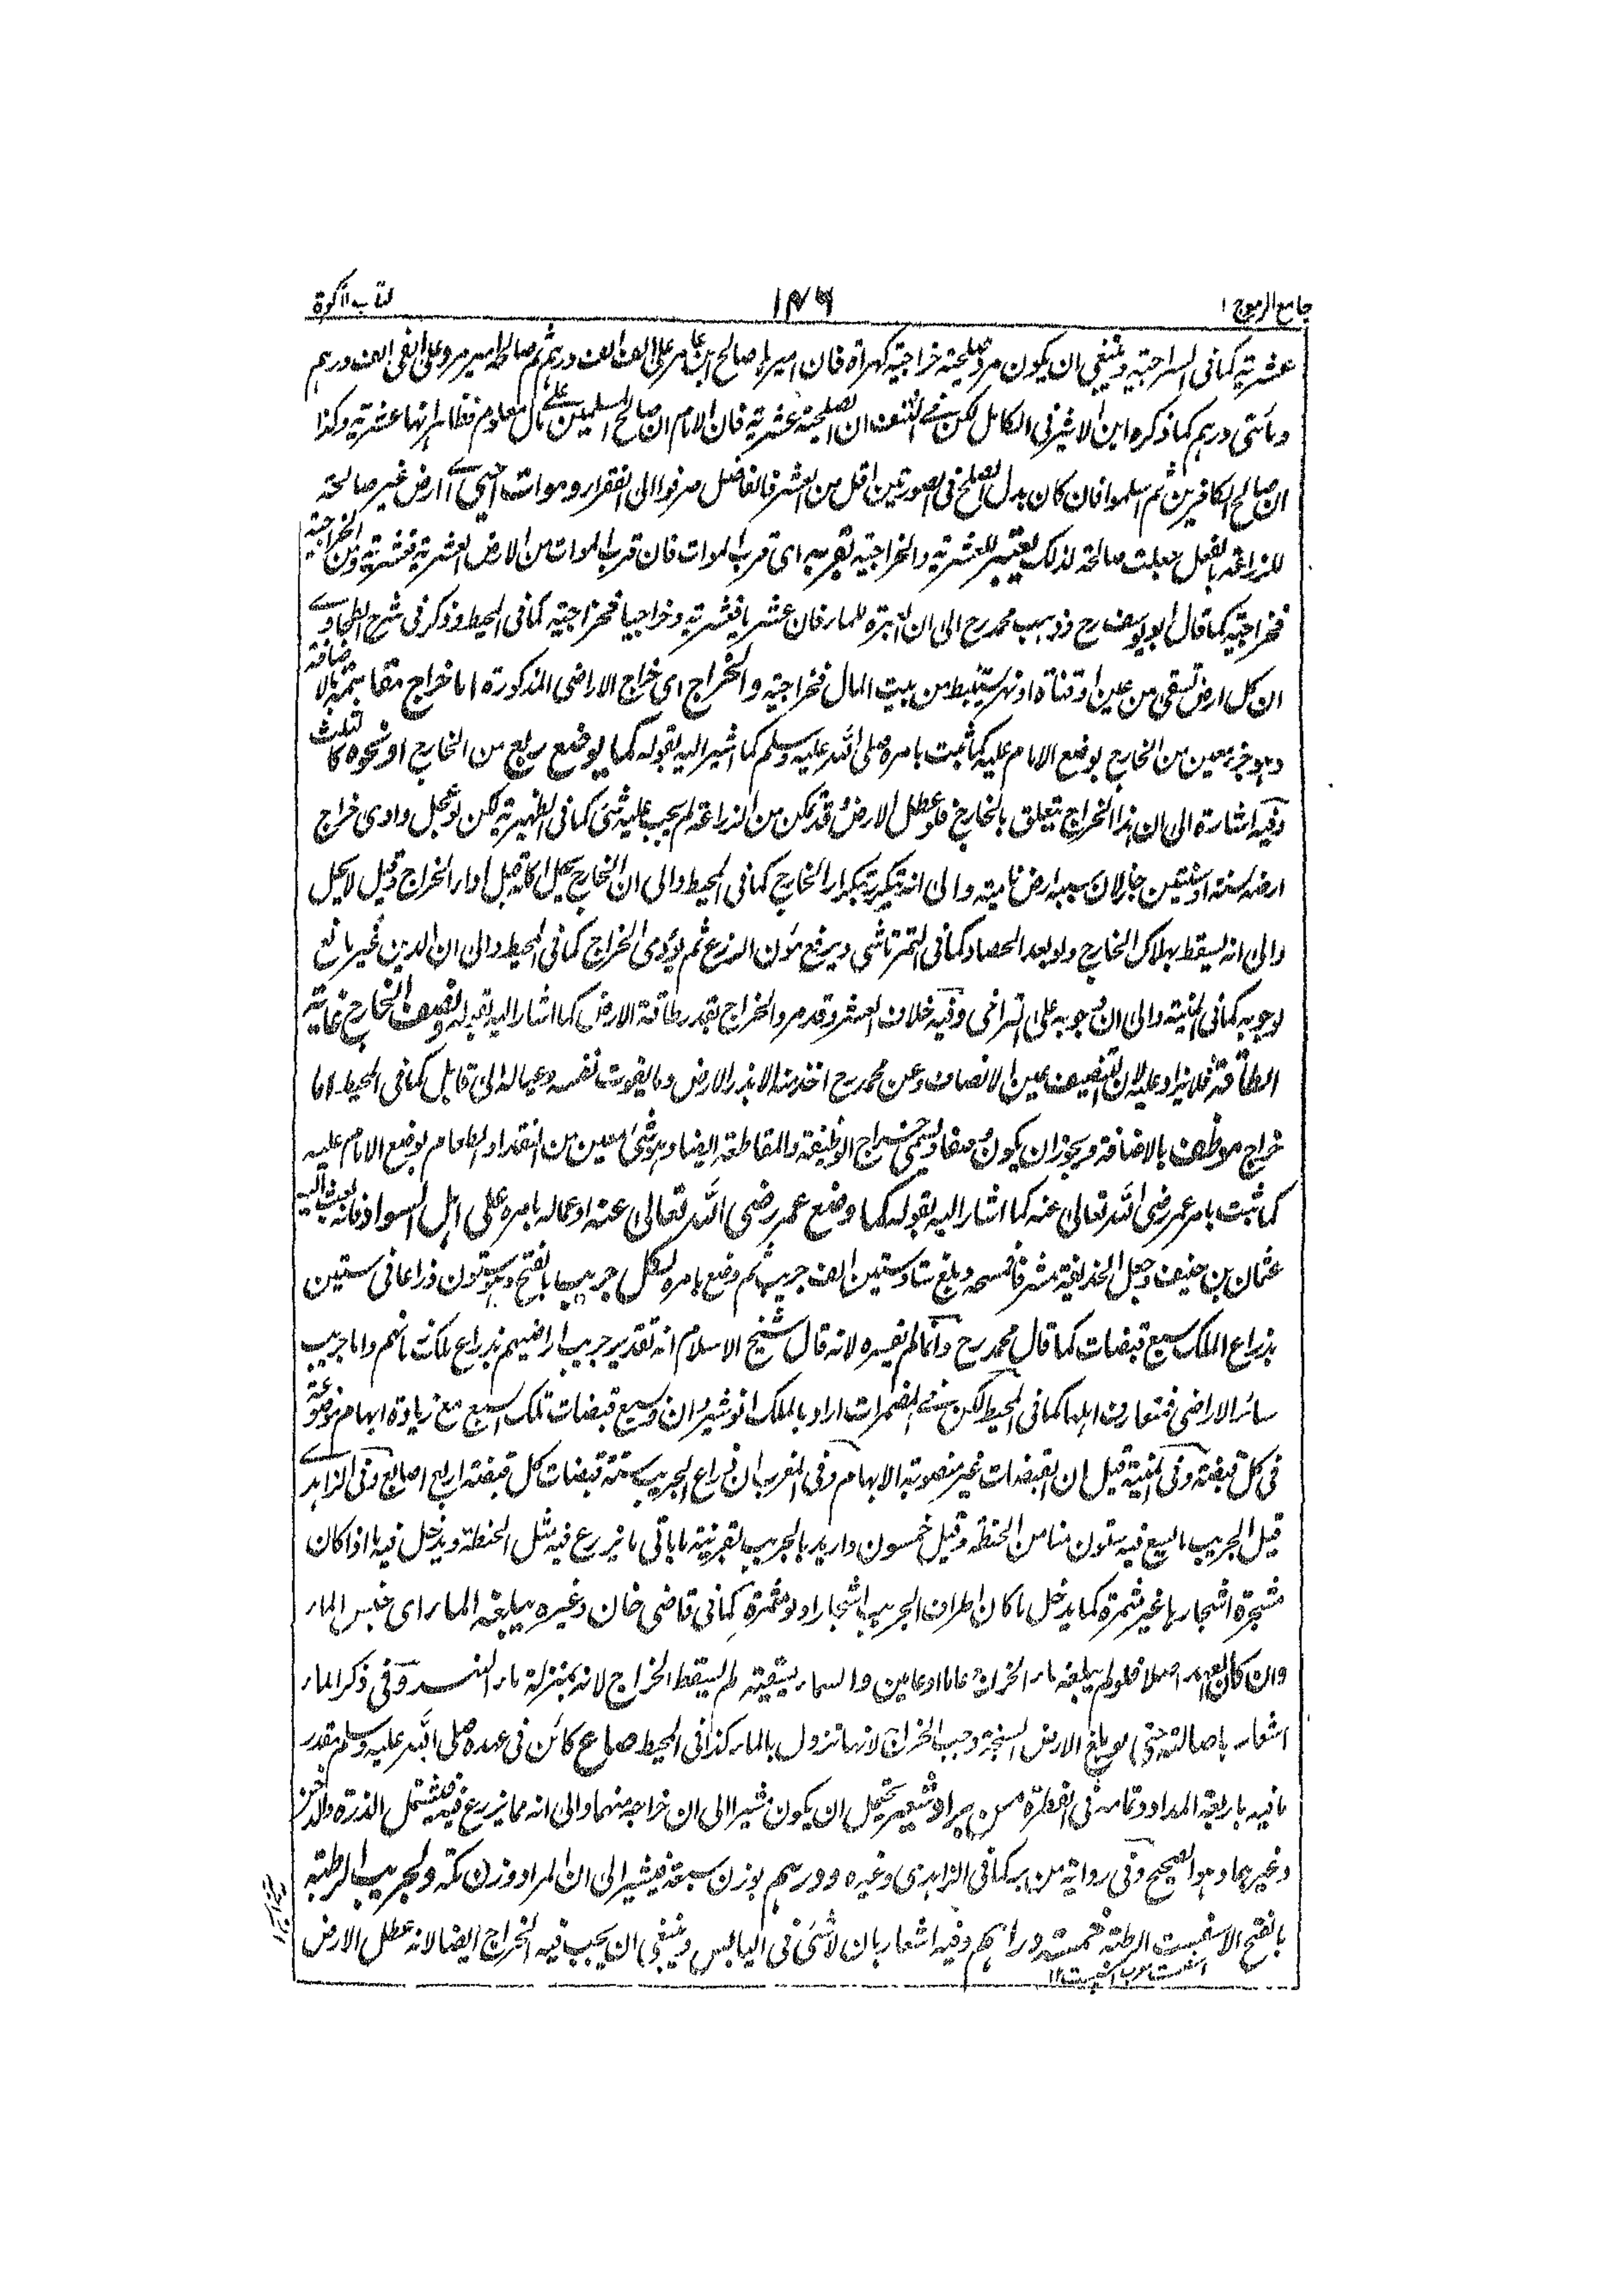 جامع الرموز ج ۱
۱۴۶
كتاب الزكوة
عشرية كما فى السراجية وينبغى ان يكون مرو صلحية خراجية كهراة فان اميرها صالح ابن عامر على الف الف درهم ثم صالحه امير مرو على الفى الف درهم
ومأتى درهم كما ذكره ابن الاثير فى الكامل لكن فى النتف ان الصلحية عشرية فان الامام ان صالح المسلمين على مال معلوم فظاهر انها عشرية وكذا
ان صالح الكافرين ثم اسلموا فان كان بدل الصلح فى الصورتين اقل من العشر فالفاضل صرفوا الى الفقراء وموات احيى اى ارض غير صالحة
للزراعة بالفعل جعلت صالحة لذلك يعتبر للعشرية والخراجية بقربه اى قرب الموات فان قرب الموات من الارض العشرية فعشرية ومن الخراجية
فخراجية كما قال ابو يوسف رح وذهب محمد رح الى ان العبرة للماء فان عشريا فعشرية وخراجيا فخراجية كما فى المحيط وذكر فى شرح الطحاوى
ان كل ارض تسقى من عين او قناة او نهر يستنبط من بيت المال فخراجية والخراج اى خراج الاراضى المذكورة اما خراج مقاسمة بالاضافة
وهو جزء معين من الخارج يوضع الامام عليه كما ثبت بامره صلى الله عليه وسلم كما اشير اليه بقوله كما يوضع ربع من الخارج او نحوه كالثلث
وفيه اشارة الى ان هذا الخراج يتعلق بالخارج فلو عطل الارض وقد تمكن من الزراعة لم يجب عليه شئ كما فى الظهيرية لكن لو عجل وادى خراج
ارضه سنة او سنتين جاز لان سببه ارض نامية والى انه يتكرر بتكرار الخارج كما فى المحيط والى ان الخارج يحل اكله قبل اداء الخراج وقيل لا يحل
والى انه يسقط بهلاك الخارج ولو بعد الحصاد كما فى التمرتاشى ويرفع مؤن الزرع ثم يؤدى الخراج كما فى المحيط والى ان الدين غير مانع
لوجوبه كما فى المنية والى ان وجوبه على التراخى وفيه خلاف العشر وقد مر والخراج بقدر طاقة الارض كما اشار اليه بقوله ونصف الخارج غاية
الطاقة فلا يزاد عليه لان التنصيف عين الانصاف وعن محمد رح اخذ منه الا بذر الارض وما يقوت نفسه وعياله الى قابل كما فى المحيط واما
خراج موظف بالاضافة ويجوز ان يكون صفة ويسمى خراج الوظيفة والمقاطعة ايضا وهو شئ معين من النقد او الطعام يوضع الامام عليه
كما ثبت بامر عمر رضى الله تعالى عنه كما اشار اليه بقوله كما وضع عمر رضى الله تعالى عنه او عماله بامره على اهل السواد فانه بعث اليه
عثمان بن حنيف وجعل الحذيفة مشرفا فمسحه وبلغ ستا وستين الف جريب ثم وضع بامره لكل جريب بالفتح وهو ستون ذراعا فى ستين
بذراع الملك سبع قبضات كما قال محمد رح وانما لم نفسره لانه قال شيخ الاسلام انه تقدير جريب اراضيهم بذراع ملك زمانهم واما جريب
سائر الاراضى فمتعارف اهلها كما فى المحيط لكن فى المضمرات اراد بالملك انوشيروان وسبع قبضات تلك السبع مع زيادة ابهام موضوعة
فى كل قبضة وفى المنية قيل ان القبضات غير منصوبة الابهام وفى المغرب ان ذراع الجريب ستة قبضات كل قبضة اربع اصابع وفى الزاهدى
قيل الجريب ما يسع فيه ستون منا من الحنطة وقيل خمسون واريد بالجريب بقرينة ما ياتى ما يزرع فيه مثل الحنطة ويدخل فيه ما اذا كان
مشجرة اشجارها غير مثمرة كما يدخل ما كان اطراف الجريب اشجارا ولو مثمرة كما فى قاضى خان وغيره يبلغه الماء اى جنس الماء
وان كان اصلا فلو لم يبلغه ماء الخراج عاما او عامين والسماء يسقيه لم يسقط الخراج لانه بمنزلة ماء النهر وفى ذكر الماء
اشعار باصالته حتى لو بلغ الارض السبخة وجب الخراج لانها تزول بالماء كذا فى المحيط صاع كائن فى عهده صلى الله عليه وسلم مقدر
ما فيه باربعة امداد وتمامه فى الفطرة من بر او شعير يحتمل ان يكون مشيرا الى ان خراجه منهما والى انه مما يزرع فيه فيشتمل الذرة والدخن
وغيرهما وهو الصحيح وفى رواية من بر كما فى الزاهدى وغيره ودرهم بوزن سبعة فيشير الى ان المراد وزن مكة ولجريب الرطبة
بالفتح الاسفست الرطبة خمسة دراهم وفيه اشعار بان لا شئ فى اليابس وينبغى ان يجب فيه الخراج ايضا لانه عطل الارض